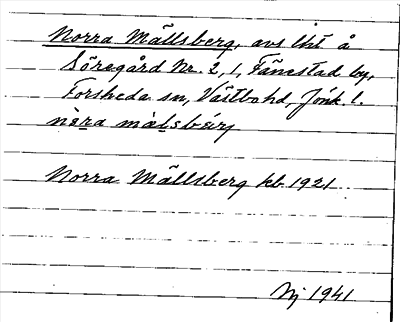 Norra Mällsberg, avs lht å
Söregård Nr. 2, 1, Fänestad by,
Forsheda sn, Västbohd, Jönk l.
Norra Mällsberg kb 1921
1941